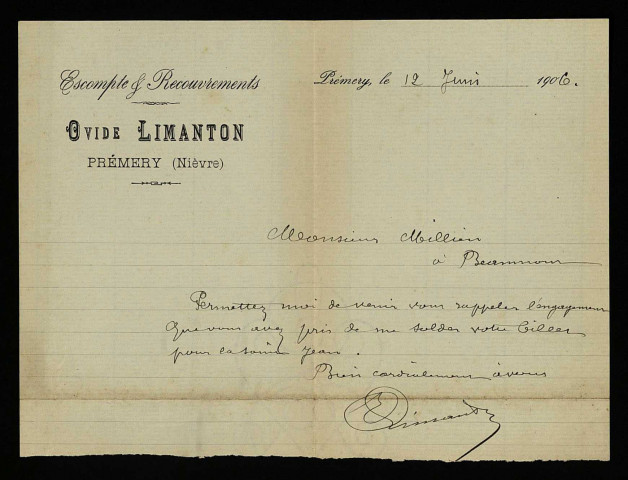 Escompte & Recouvrements
Prémery, le 12 Juin 1906.
OVIDE LIMANTON
PRÉMERY (Nièvre)
Monsieur Millien
à Beaumont
Permettez moi de venir vous rappeler l'engagement
que vous avez pris de me solder votre billet
pour la saint Jean.
Bien cordialement à vous
Limanton